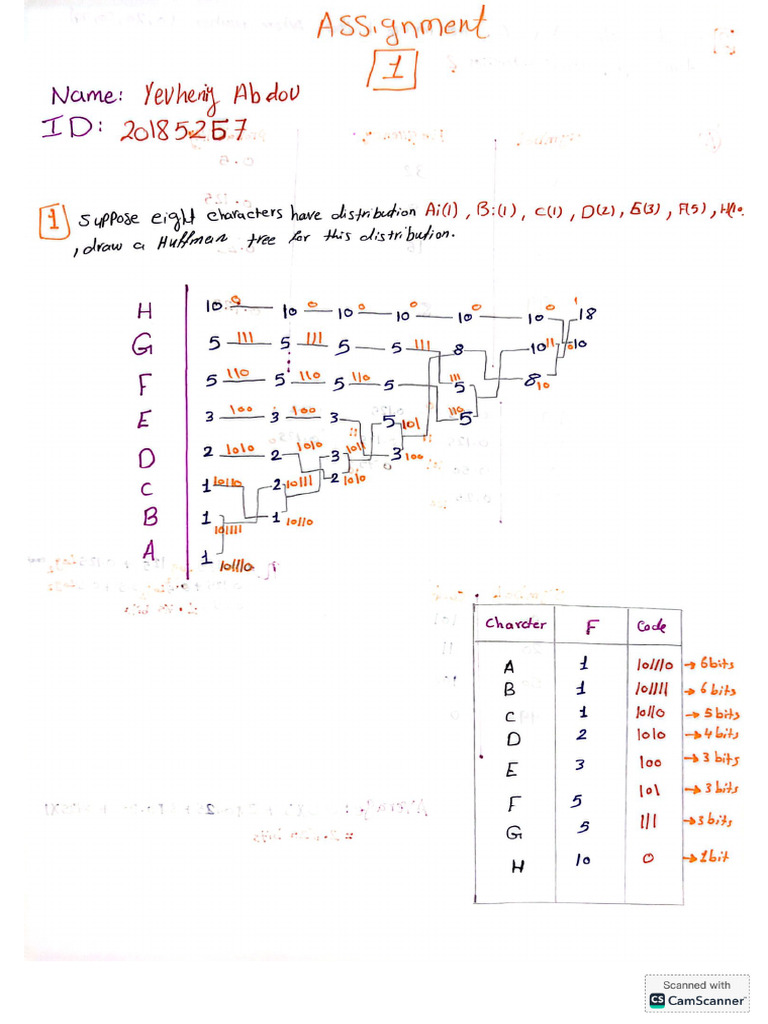 Assignment
1
Name: Yevheniy Abdou
ID: 20185257
1 Suppose eight characters have distribution A:(1), B:(1), C(1), D(2), E(3), F(5), H(10
, draw a Huffman tree for this distribution.
H 10 0 10 0 10 0 10 0 10 0 10 0 18
G 5 111 5 111 5 5 111 8 10 11 10
F 5 110 5 110 5 110 5 111 5 8 10
E 3 100 3 100 3 5 101 110 5
D 2 1010 2 1010 3 1011 3 100
C 1 10110 2 10111 2 1010
B 1 101111 1 10110
A 1 101110
Charcter F Code
A 1 101110 → 6bits
B 1 101111 → 6 bits
C 1 10110 → 5 bits
D 2 1010 → 4 bits
E 3 100 → 3 bits
F 5 101 → 3 bits
G 5 111 → 3 bits
H 10 0 → 1 bit
Scanned with
CS CamScanner